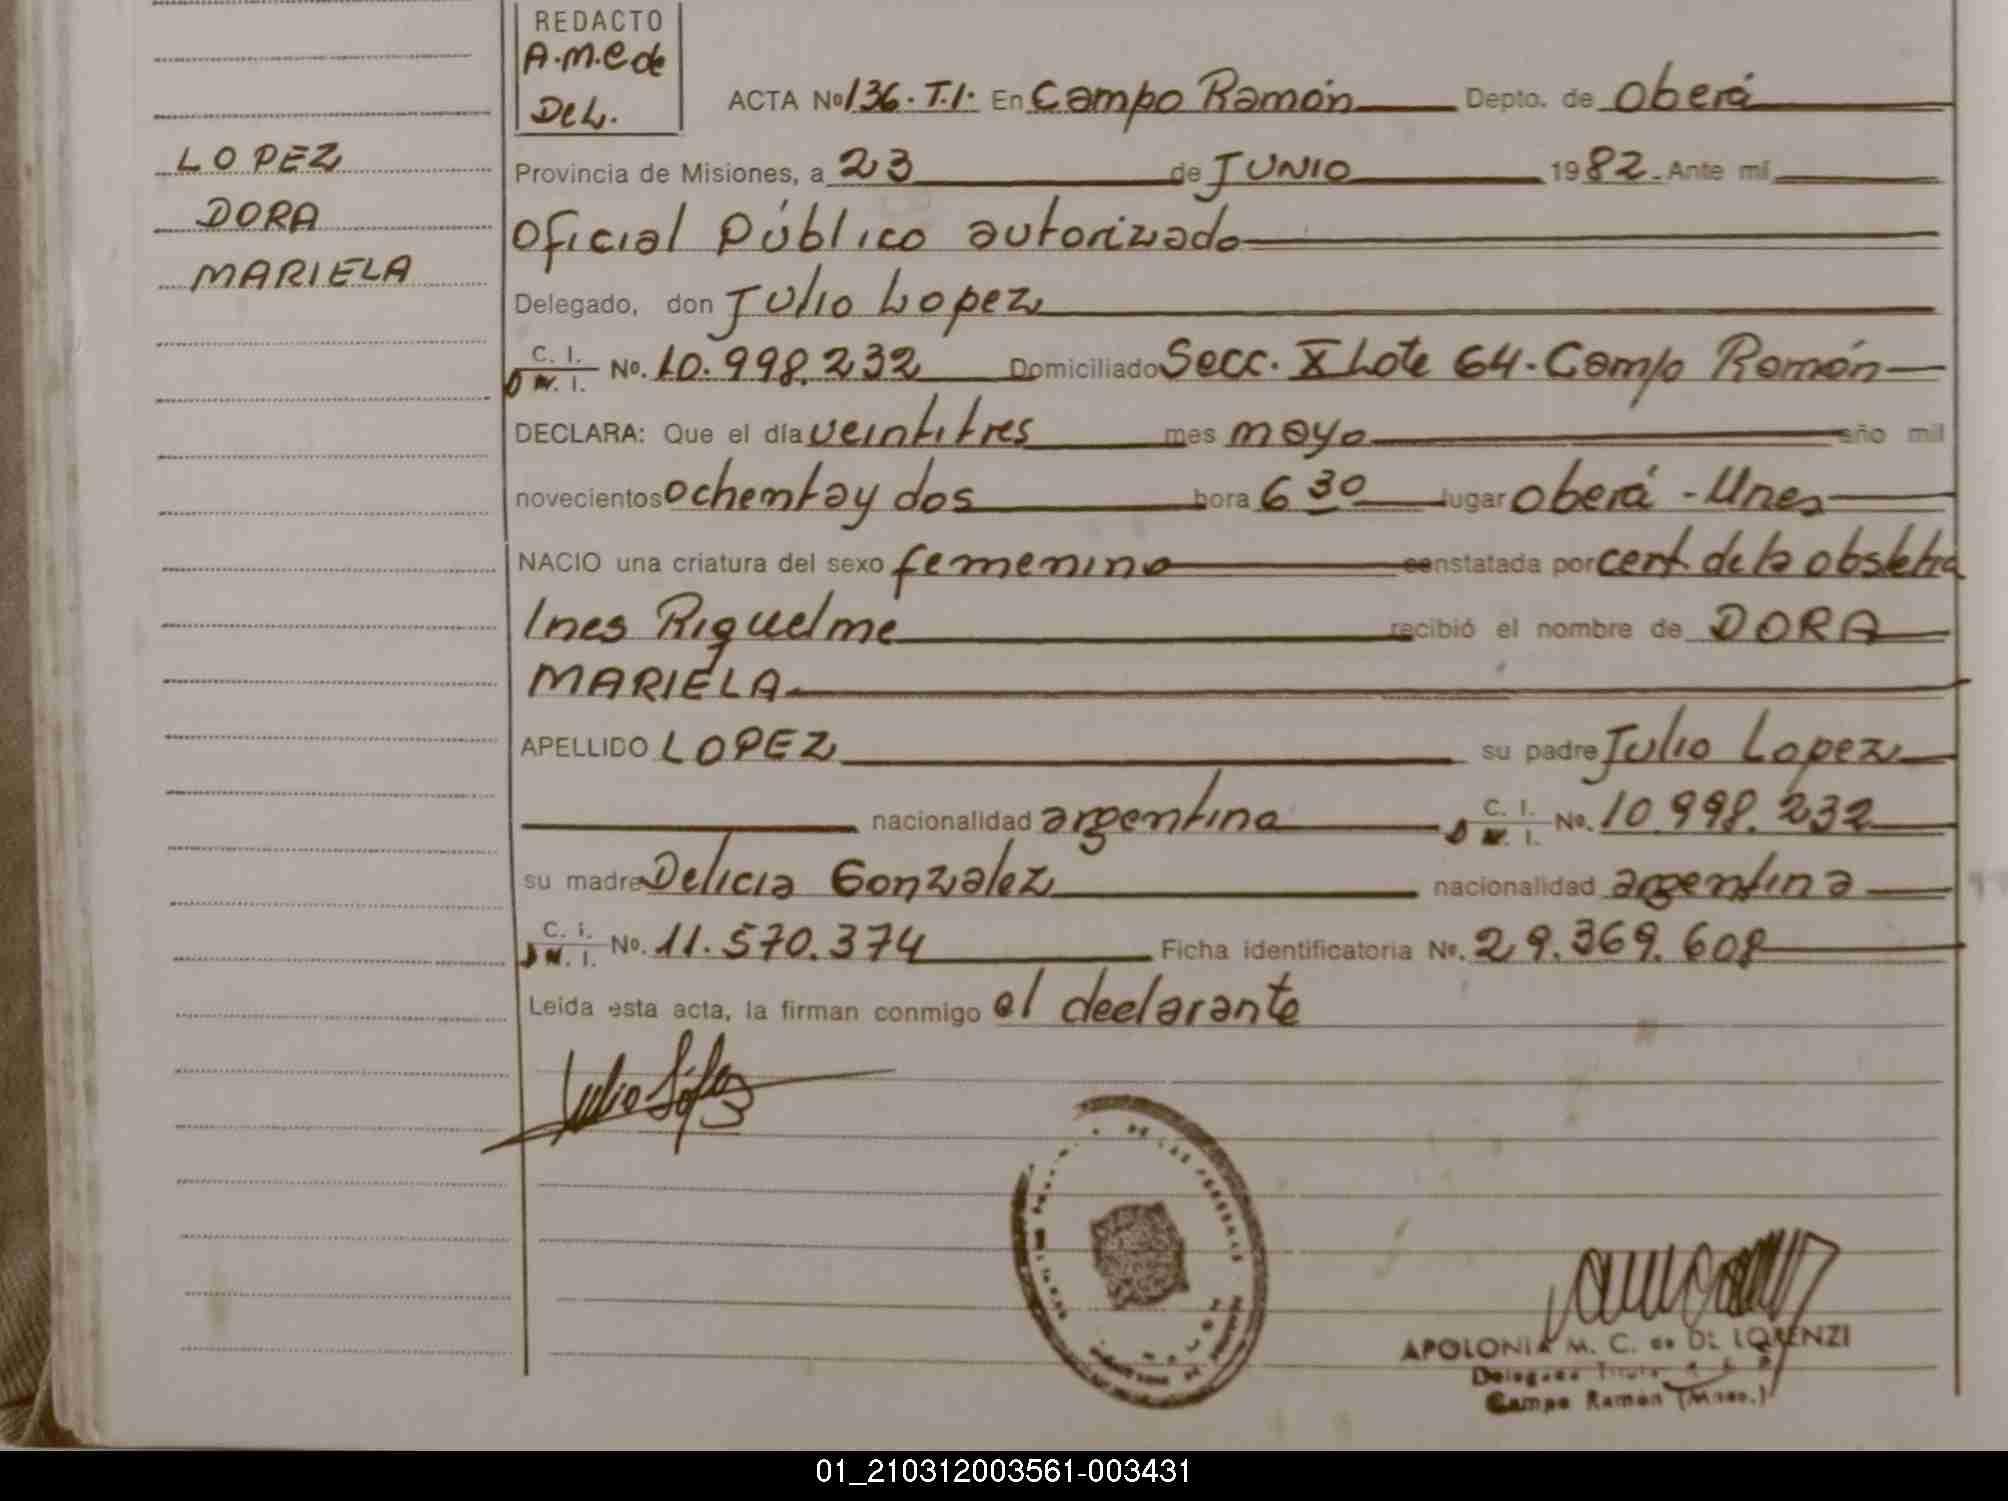 REDACTO
A.M.C de
DeL.
LOPEZ
DORA
MARIELA
ACTA Nº 136. T.1. En Campo Ramón Depto. de Oberá
Provincia de Misiones, a 23 de JUNIO 1982. Ante mí
Oficial Público autorizado
Delegado, don Julio Lopez
C. I. D M. I. Nº. 10.998.232 Domiciliado Secc. X Lote 64 - Campo Ramón
DECLARA: Que el día veintitres mes mayo año mil
novecientos ochenta y dos hora 6 30 lugar Oberá - Unes
NACIO una criatura del sexo femenino constatada por cert. de la obstetra
Ines Riquelme recibió el nombre de DORA
MARIELA
APELLIDO LOPEZ su padre Julio Lopez
nacionalidad argentina C. I. D M. I. Nº. 10.998.232
su madre Delicia Gonzalez nacionalidad argentina
C. I. D M. I. Nº. 11.570.374 Ficha identificatoria Nº. 29.369.608
Leída esta acta, la firman conmigo el declarante
Julio López
DE LAS PERSONAS
APOLONIA M. C. de DE LORENZI
Delegada Titular
Campo Ramón (Mnes.)
01_210312003561-003431